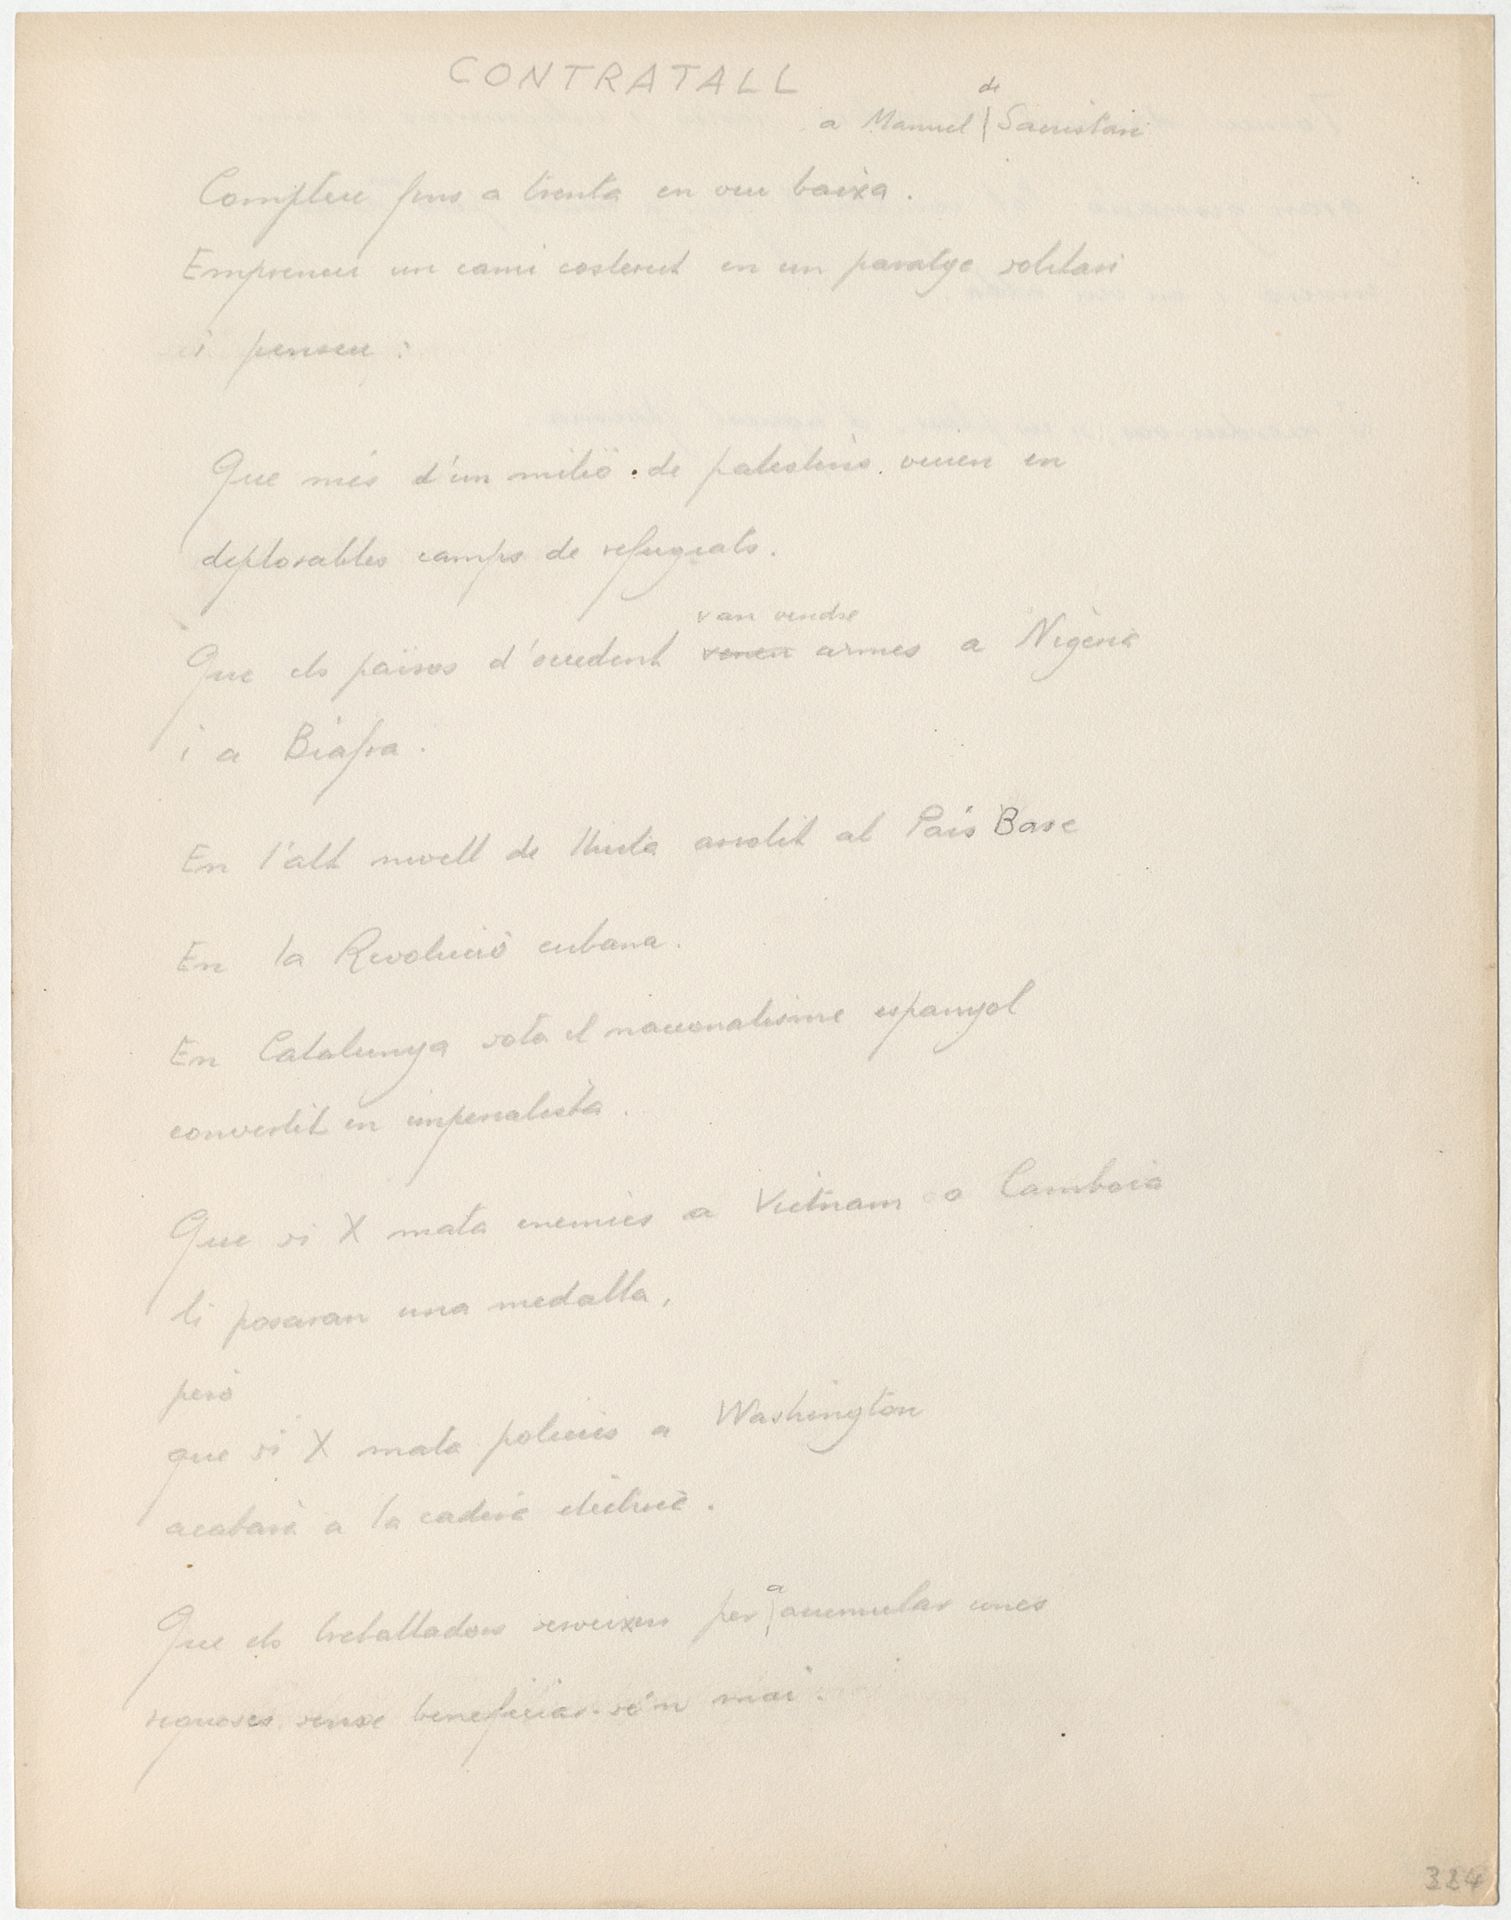 CONTRATALL
a Manuel de Sacristan
Compteu fins a trenta en veu baixa.
Empreneu un camí costerut en un paratge solitari
i penseu:
Que més d'un milió de palestins viuen en
deplorables camps de refugiats.
van vendre
Que els països d'occident venen armes a Nigèria
i a Biafra.
En l'alt nivell de lluita assolit al País Basc
En la Revolució cubana.
En Catalunya sota el nacionalisme espanyol
convertit en imperialista.
Que si X mata enemics a Vietnam o Camboia
li posaran una medalla,
però
que si X mata policies a Washington
acabarà a la cadira elèctrica.
Que els treballadors serveixen per a acumular unes
riqueses sense beneficiar-se'n mai.
324